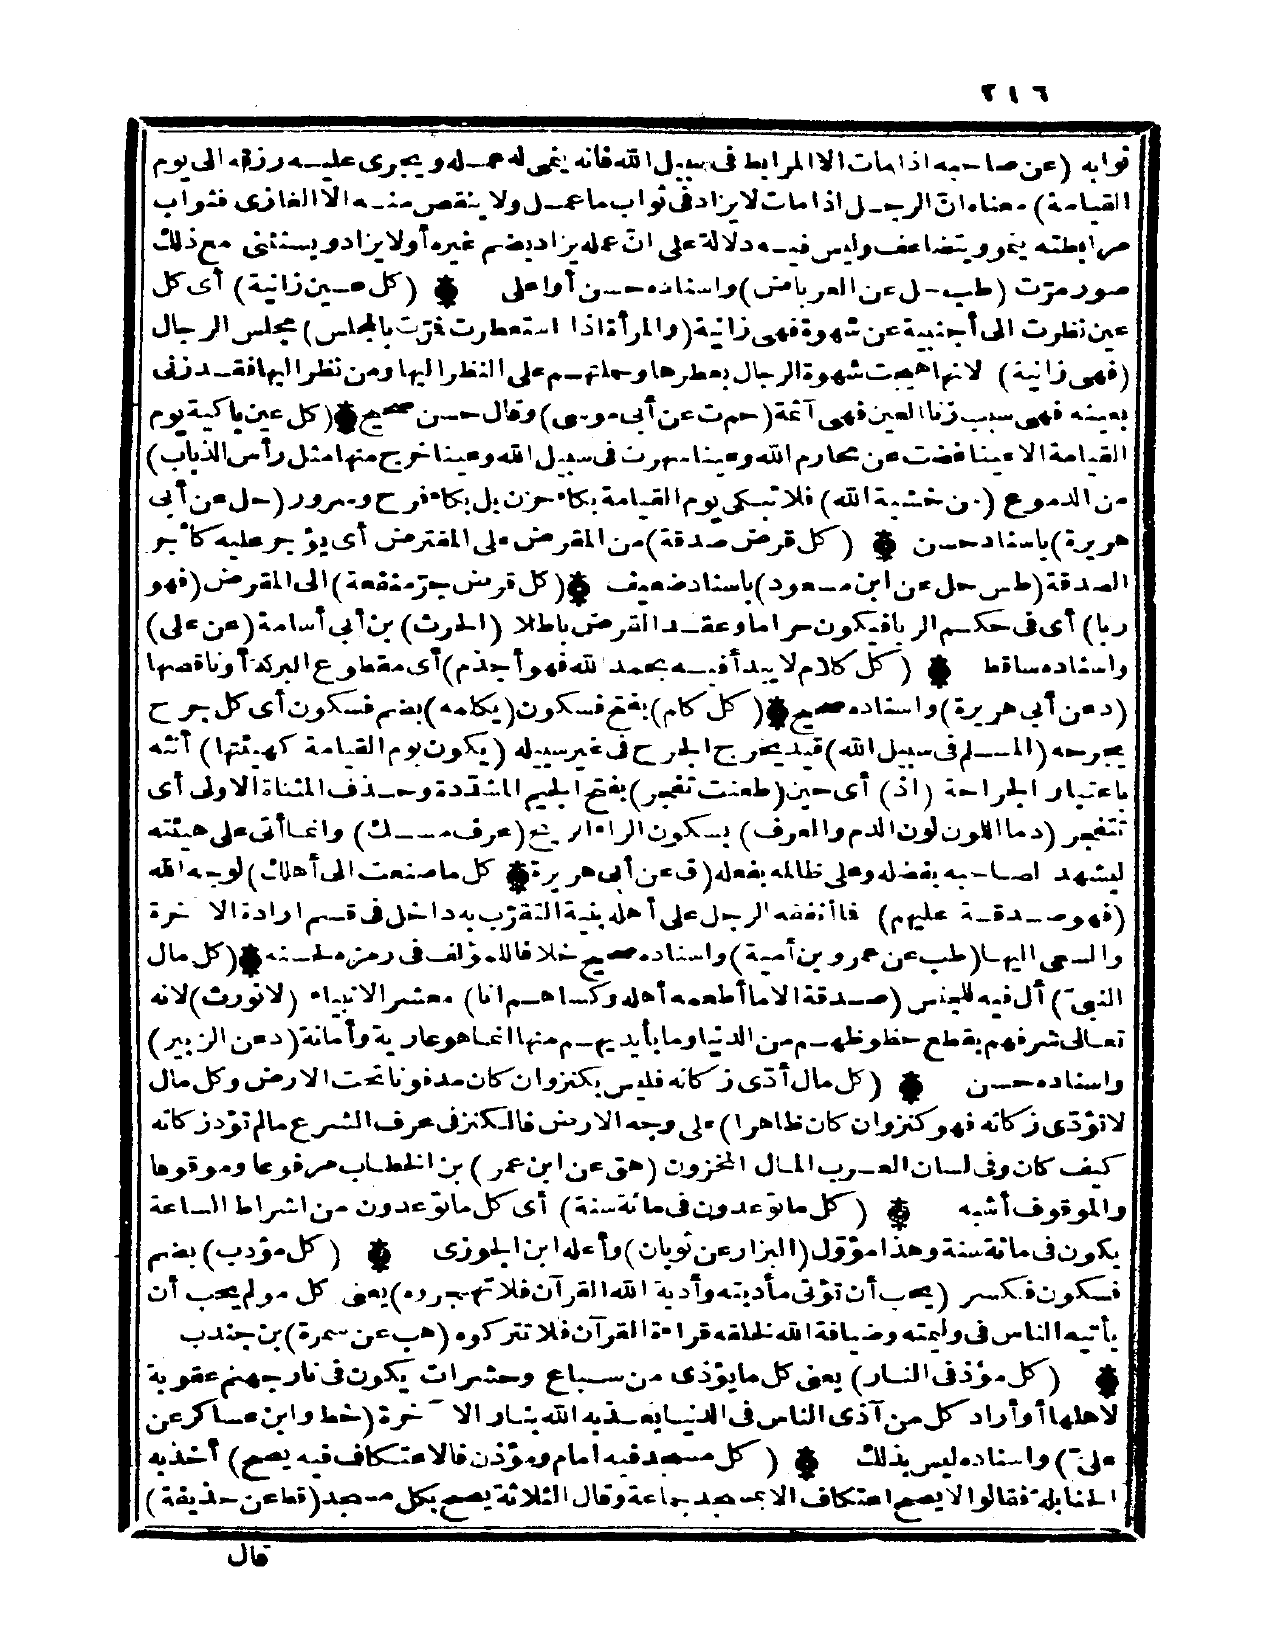 ٢١٦
ثوابه (عن صاحبه اذا مات الا المرابط فى سبيل الله فانه ينمى له عمله ويجرى عليه رزقه الى يوم
القيامة) معناه ان الرجل اذا مات لا يزاد فى ثواب ما عمل ولا ينقص منه الا الغازى فثواب
مرابطته ينمو ويتضاعف وليس فيه دلالة على ان عمله يزاد بضم غيره أولا يزاد ويستثنى مع ذلك
صور مرّت (طب حل عن العرباض) واسناده حسن أو اعلى ۞ (كل عين زانية) أى كل
عين نظرت الى أجنبية عن شهوة فهى زانية (والمرأة اذا استعطرت فمرّت بالمجلس) مجلس الرجال
(فهى زانية) لانها هيجت شهوة الرجال بعطرها وحملتهم على النظر اليها ومن نظر اليها فقد زنى
بعينه فهى سبب زنا العين فهى آثمة (حم ت عن أبى موسى) وقال حسن صحيح ۞ (كل عين باكية يوم
القيامة الا عينا غضت عن محارم الله وعينا سهرت فى سبيل الله وعينا خرج منها مثل رأس الذباب)
من الدموع (من خشية الله) فلا تبكى يوم القيامة بكاء حزن بل بكاء فرح وسرور (حل عن أبى
هريرة) باسناد حسن ۞ (كل قرض صدقة) من المقرض على المقترض أى يؤجر عليه كأجر
الصدقة (طس حل عن ابن مسعود) باسناد ضعيف ۞ (كل قرض جرّ منفعة) الى المقرض (فهو
ربا) أى فى حكم الربا فيكون حراما وعقد القرض باطلا (الحرث) بن أبى أسامة (عن على)
واسناده ساقط ۞ (كل كلام لا يبدأ فيه بحمد لله فهو أجذم) أى مقطوع البركة أو ناقصها
(د عن أبى هريرة) واسناده صحيح ۞ (كل كلم) بفتح فسكون (يكلمه) بضم فسكون أى كل جرح
يجرحه (المسلم فى سبيل الله) قيد يخرج الجرح فى غير سبيله (يكون يوم القيامة كهيئتها) أنثه
باعتبار الجراحة (اذ) أى حين (طعنت تفجر) بفتح الجيم المشددة وحذف المثناة الاولى أى
تتفجر (دما اللون لون الدم والعرف) بسكون الراء الريح (عرف مسك) وانما أتى على هيئته
ليشهد لصاحبه بفضله وعلى ظالمه بفعله (ق عن أبى هريرة ۞ كل ما صنعت الى أهلك) لوجه الله
(فهو صدقة عليهم) فما أنفقه الرجل على أهله بنية التقرّب به داخل فى قسم ارادة الآخرة
والسعى اليها (طب عن عمرو بن أمية) واسناده صحيح خلافا للمؤلف فى رمزه لحسنه ۞ (كل مال
النبىّ) أل فيه للجنس (صدقة الا ما أطعمه أهله وكساهم انا) معشر الانبياء (لا نورث) لانه
تعالى شرفهم بقطع حظوظهم من الدنيا وما بأيديهم منها انما هو عارية وأمانة (د عن الزبير)
واسناده حسن ۞ (كل مال أدّى زكاته فليس بكنز وان كان مدفونا تحت الارض وكل مال
لا تؤدّى زكاته فهو كنز وان كان ظاهرا) على وجه الارض فالكنز فى عرف الشرع ما لم تؤد زكاته
كيف كان وفى لسان العرب المال المخزون (هق عن ابن عمر) بن الخطاب مرفوعا وموقوفا
والموقوف أشبه ۞ (كل ما توعدون فى مائة سنة) أى كل ما توعدون من اشراط الساعة
يكون فى مائة سنة وهذا مؤوّل (البزار عن ثوبان) وأعله ابن الجوزى ۞ (كل مؤدب) بضم
فسكون فكسر (يحب أن تؤتى مأدبته وأدبة الله القرآن فلا تهجروه) يعنى كل مولم يحب أن
يأتيه الناس فى وليمته وضيافة الله لخلقه قراءة القرآن فلا تتركوه (هب عن سمرة) بن جندب
۞ (كل مؤذ فى النار) يعنى كل ما يؤذى من سباع وحشرات يكون فى نار جهنم عقوبة
لاهلها أو أراد كل من آذى الناس فى الدنيا يعذبه الله بنار الآخرة (خط وابن عساكر عن
علىّ) واسناده ليس بذلك ۞ (كل مسجد فيه امام ومؤذن فالاعتكاف فيه يصح) أخذ به
الحنابلة فقالوا لا يصح اعتكاف الا بمسجد جماعة وقال الثلاثة يصح بكل مسجد (قط عن حذيفة)
قال